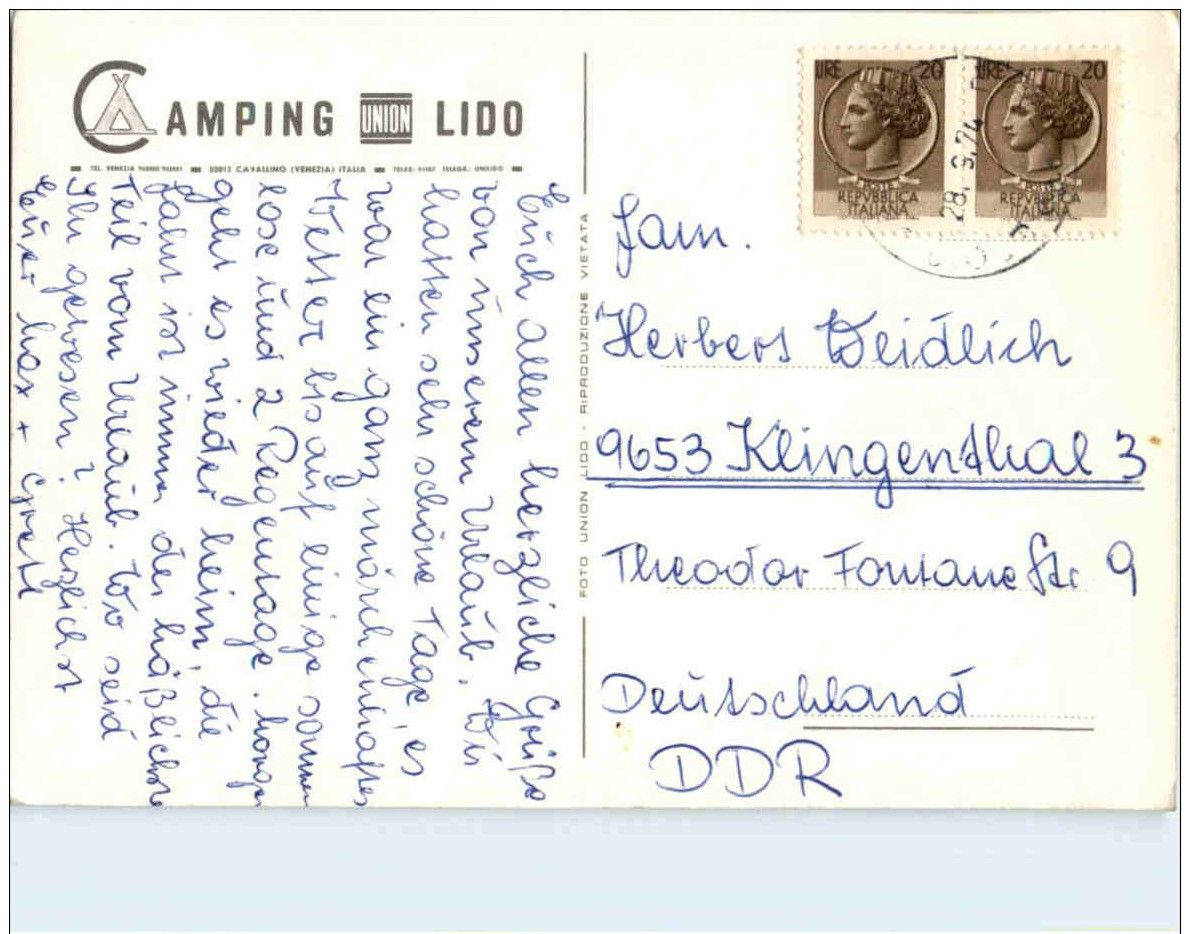 CAMPING UNION LIDO
30013 CAVALLINO (VENEZIA) ITALIA
Euch allen herzliche Grüße
von unserem Urlaub. Wir
hatten sehr schöne Tage, es
war ein ganz märchenhaftes
Wetter bis auf einige sonnen
lose und 2 Regentage. Morgen
geht es wieder heim, die
Fahrt ist immer der häßlichste
Teil vom Urlaub. Wo seid
Ihr gewesen? Herzlichst
Euer Max + Gretl
FOTO UNION LIDO - RIPRODUZIONE VIETATA
LIRE 20
POSTE
REPVBBLICA
ITALIANA
LIRE 20
POSTE
REPVBBLICA
ITALIANA
28.9.74
Fam.
Herbert Weidlich
9653 Klingenthal 3
Theodor Fontane Str 9
Deutschland
DDR